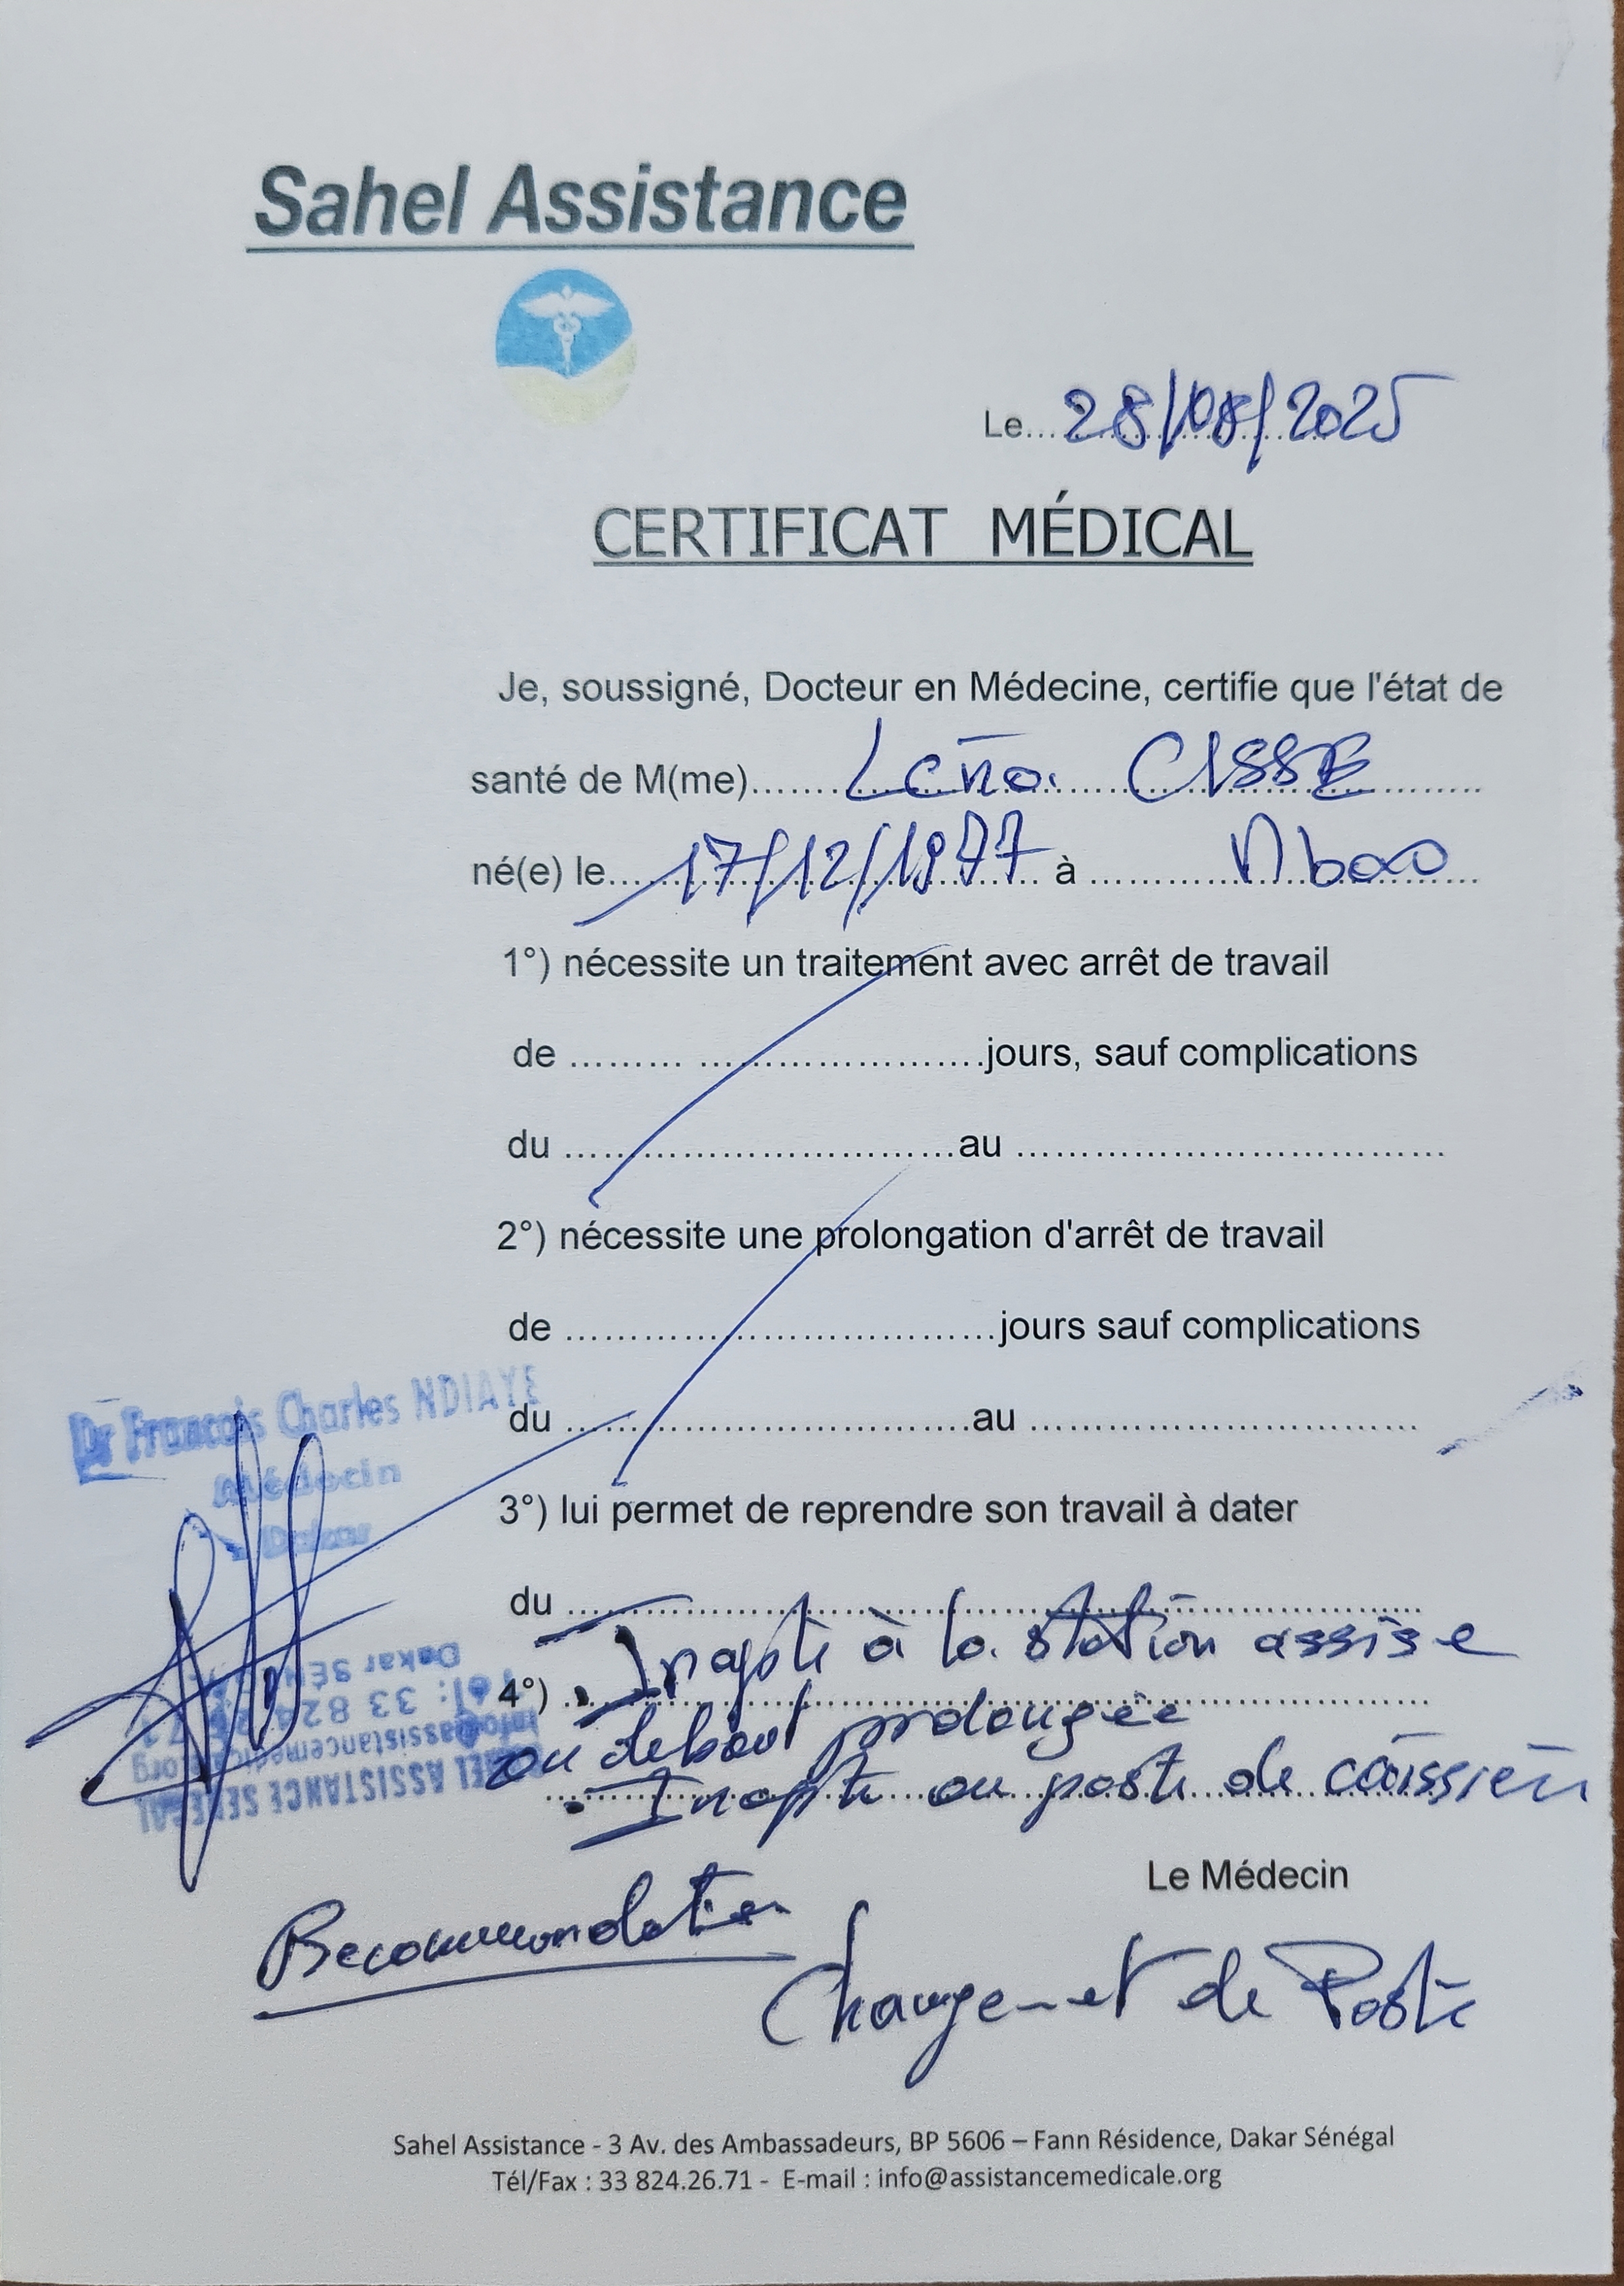 Sahel Assistance
Le... 28/08/2025
CERTIFICAT MÉDICAL
Je, soussigné, Docteur en Médecine, certifie que l'état de
santé de M(me)....... CISSE ........
né(e) le... 17/12/1977 à ............ Mbao
1°) nécessite un traitement avec arrêt de travail
de ......... ........................jours, sauf complications
du ..................................au ....................................
2°) nécessite une prolongation d'arrêt de travail
de ....................................jours sauf complications
du ..................................au .................................
Dr François Charles NDIAYE
Médecin
Dakar
3°) lui permet de reprendre son travail à dater
du ........................................................................
4°) . Inapte à la station assise
ou debout prolongée
. Inapte au poste de caissier
SAHEL ASSISTANCE SENEGAL
Le Médecin
Recommandation
Changement de Poste
Sahel Assistance - 3 Av. des Ambassadeurs, BP 5606 – Fann Résidence, Dakar Sénégal
Tél/Fax : 33 824.26.71 - E-mail : info@assistancemedicale.org